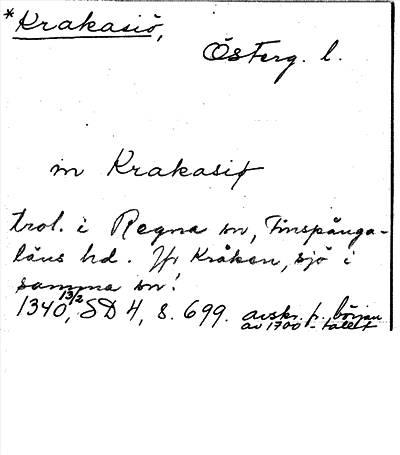 *Krakasiö,
Österg. l.
in Krakasiø
trol. i Regna sn, Finspånga-
läns hd. Jfr Kråken, sjö i
samma sn!
1340 13/2, SD 4, s. 699. avskr. p., början
av 1700-talet